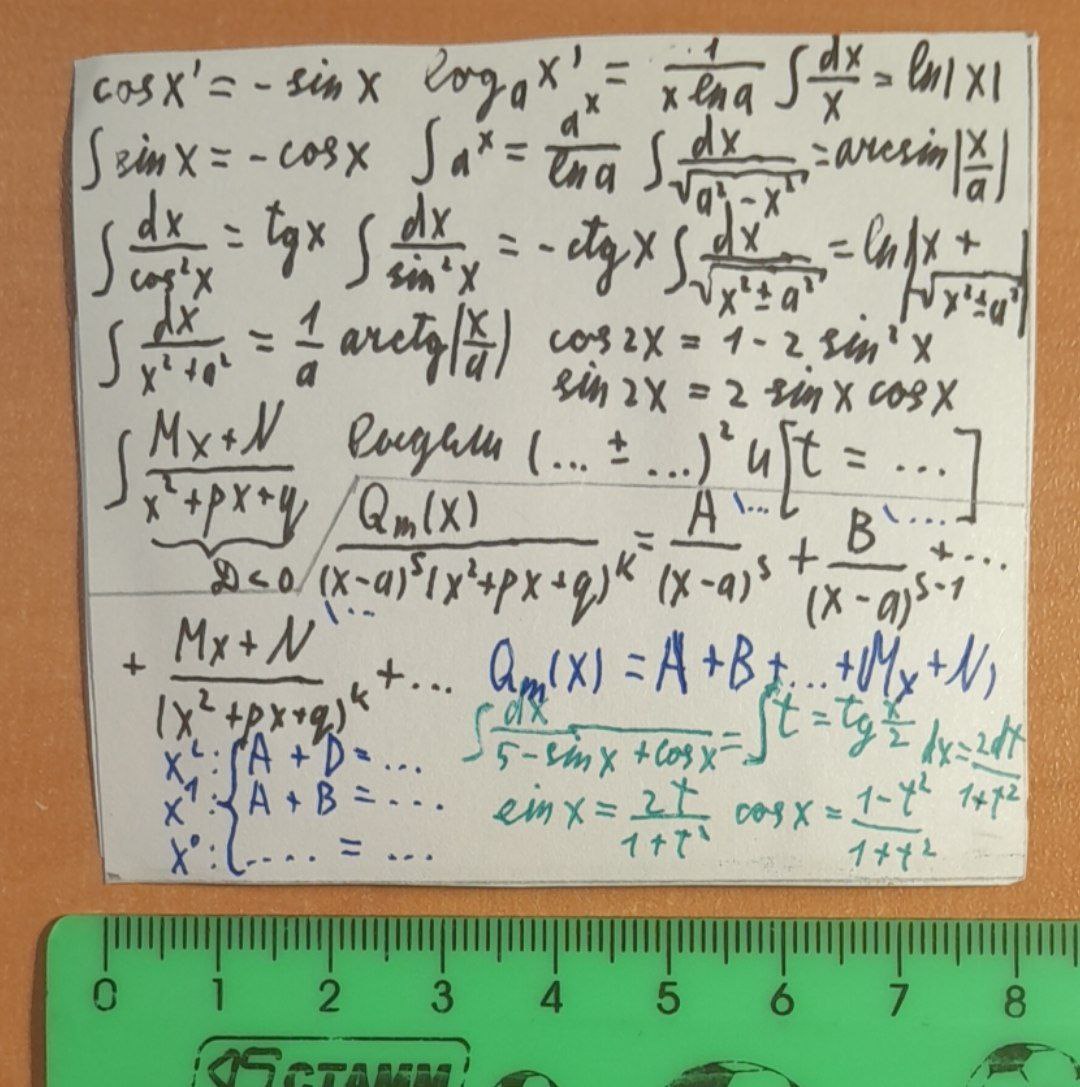 cos x' = - sin x   log_a x' = 1/(x ln a)   ∫ dx/x = ln|x|
∫ sin x = - cos x   ∫ a^x = a^x/ln a   ∫ dx/√(a² - x²) = arcsin|x/a|
∫ dx/cos²x = tg x   ∫ dx/sin²x = - ctg x   ∫ dx/√(x² ± a²) = ln|x + √(x² ± a²)|
∫ dx/(x² + a²) = 1/a arctg|x/a|   cos 2x = 1 - 2 sin² x
sin 2x = 2 sin x cos x
∫ (Mx + N)/(x² + px + q)   (... ± ...)² и [t = ...]
D < 0   Q_m(x)/((x-a)^s (x² + px + q)^k) = A\.../(x-a)^s + B\.../(x-a)^(s-1) + ...
+ (Mx + N)\.../(x² + px + q)^k + ...   Q_m(x) = A + B + ... + Mx + N)
∫ dx/(5 - sin x + cos x) = ∫ t = tg x/2   dx = 2dt/(1+t²)
x²: { A + D = ...
x¹: { A + B = ...   sin x = 2t/(1+t²)   cos x = (1-t²)/(1+t²)
x⁰: { .... = ...
0 1 2 3 4 5 6 7 8
СТАММ